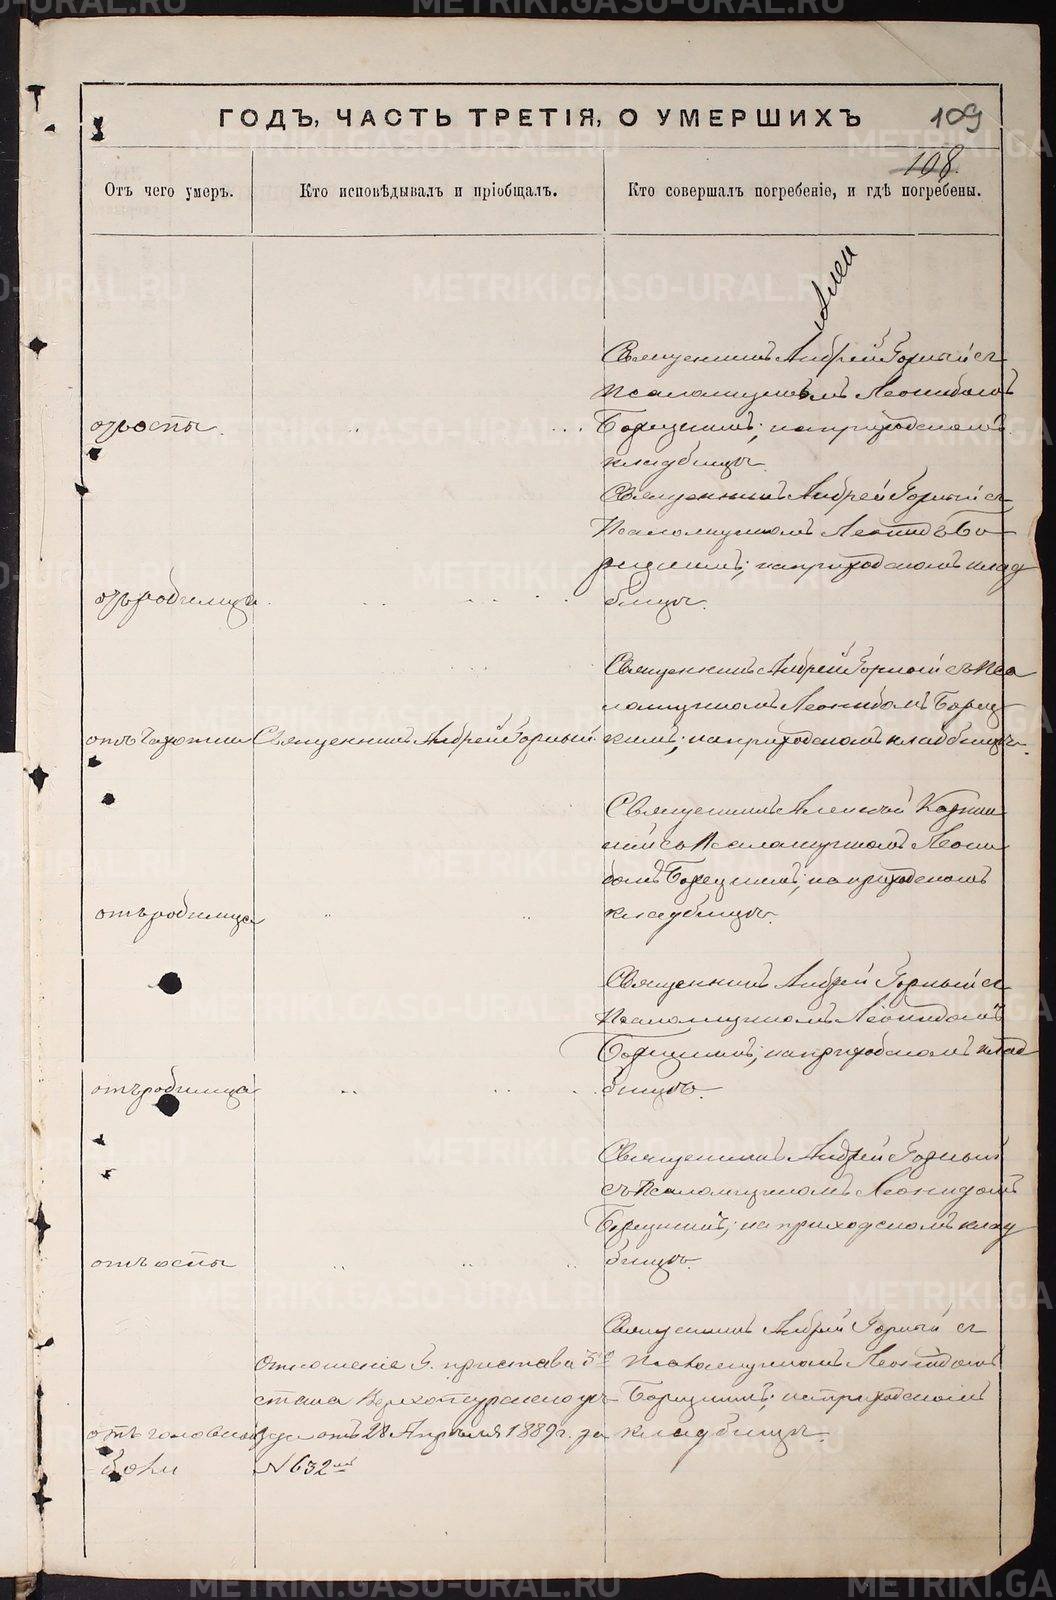 ГОДЪ, ЧАСТЬ ТРЕТІЯ, О УМЕРШИХЪ
109
108.
Отъ чего умеръ.
Кто исповѣдывалъ и пріобщалъ.
Кто совершалъ погребеніе, и гдѣ погребены.
Священникъ Андрей Горный съ
Псаломщикомъ Леонидомъ
отъ оспы.
Борецкимъ; на приходскомъ
кладбищѣ.
Священникъ Андрей Горный съ
Псаломщикомъ Леонидъ Бо-
рецкимъ; на приходскомъ клад
отъ родимца.
бищѣ.
Священникъ Андрей Горный съ Пса
ломщикомъ Леонидомъ Борец
отъ чахотки
Священникъ Андрей Горный.
кимъ; на приходскомъ кладбищѣ.
Священникъ Алексѣй
съ Псаломщикомъ Леони
домъ Борецкимъ; на приходскомъ
отъ родимца
кладбищѣ.
Священникъ Андрей Горный съ
Псаломщикомъ Леонидомъ
Борецкимъ; на приходскомъ клад
отъ родимца
бищѣ.
Священникъ Андрей Горный
съ Псаломщикомъ Леонидомъ
Борецкимъ; на приходскомъ клад
отъ оспы
бищѣ.
Священникъ Андрей Горный съ
Отношеніе Г. пристава 3го
Псаломщикомъ Леонидомъ
стана Верхотурскаго уѣ-
Борецкимъ; на приходскомъ
отъ головной
зда отъ 28 Апрѣля 1889 г. за
кладбищѣ.
боли
№ 632
METRIKI.GASO-URAL.RU